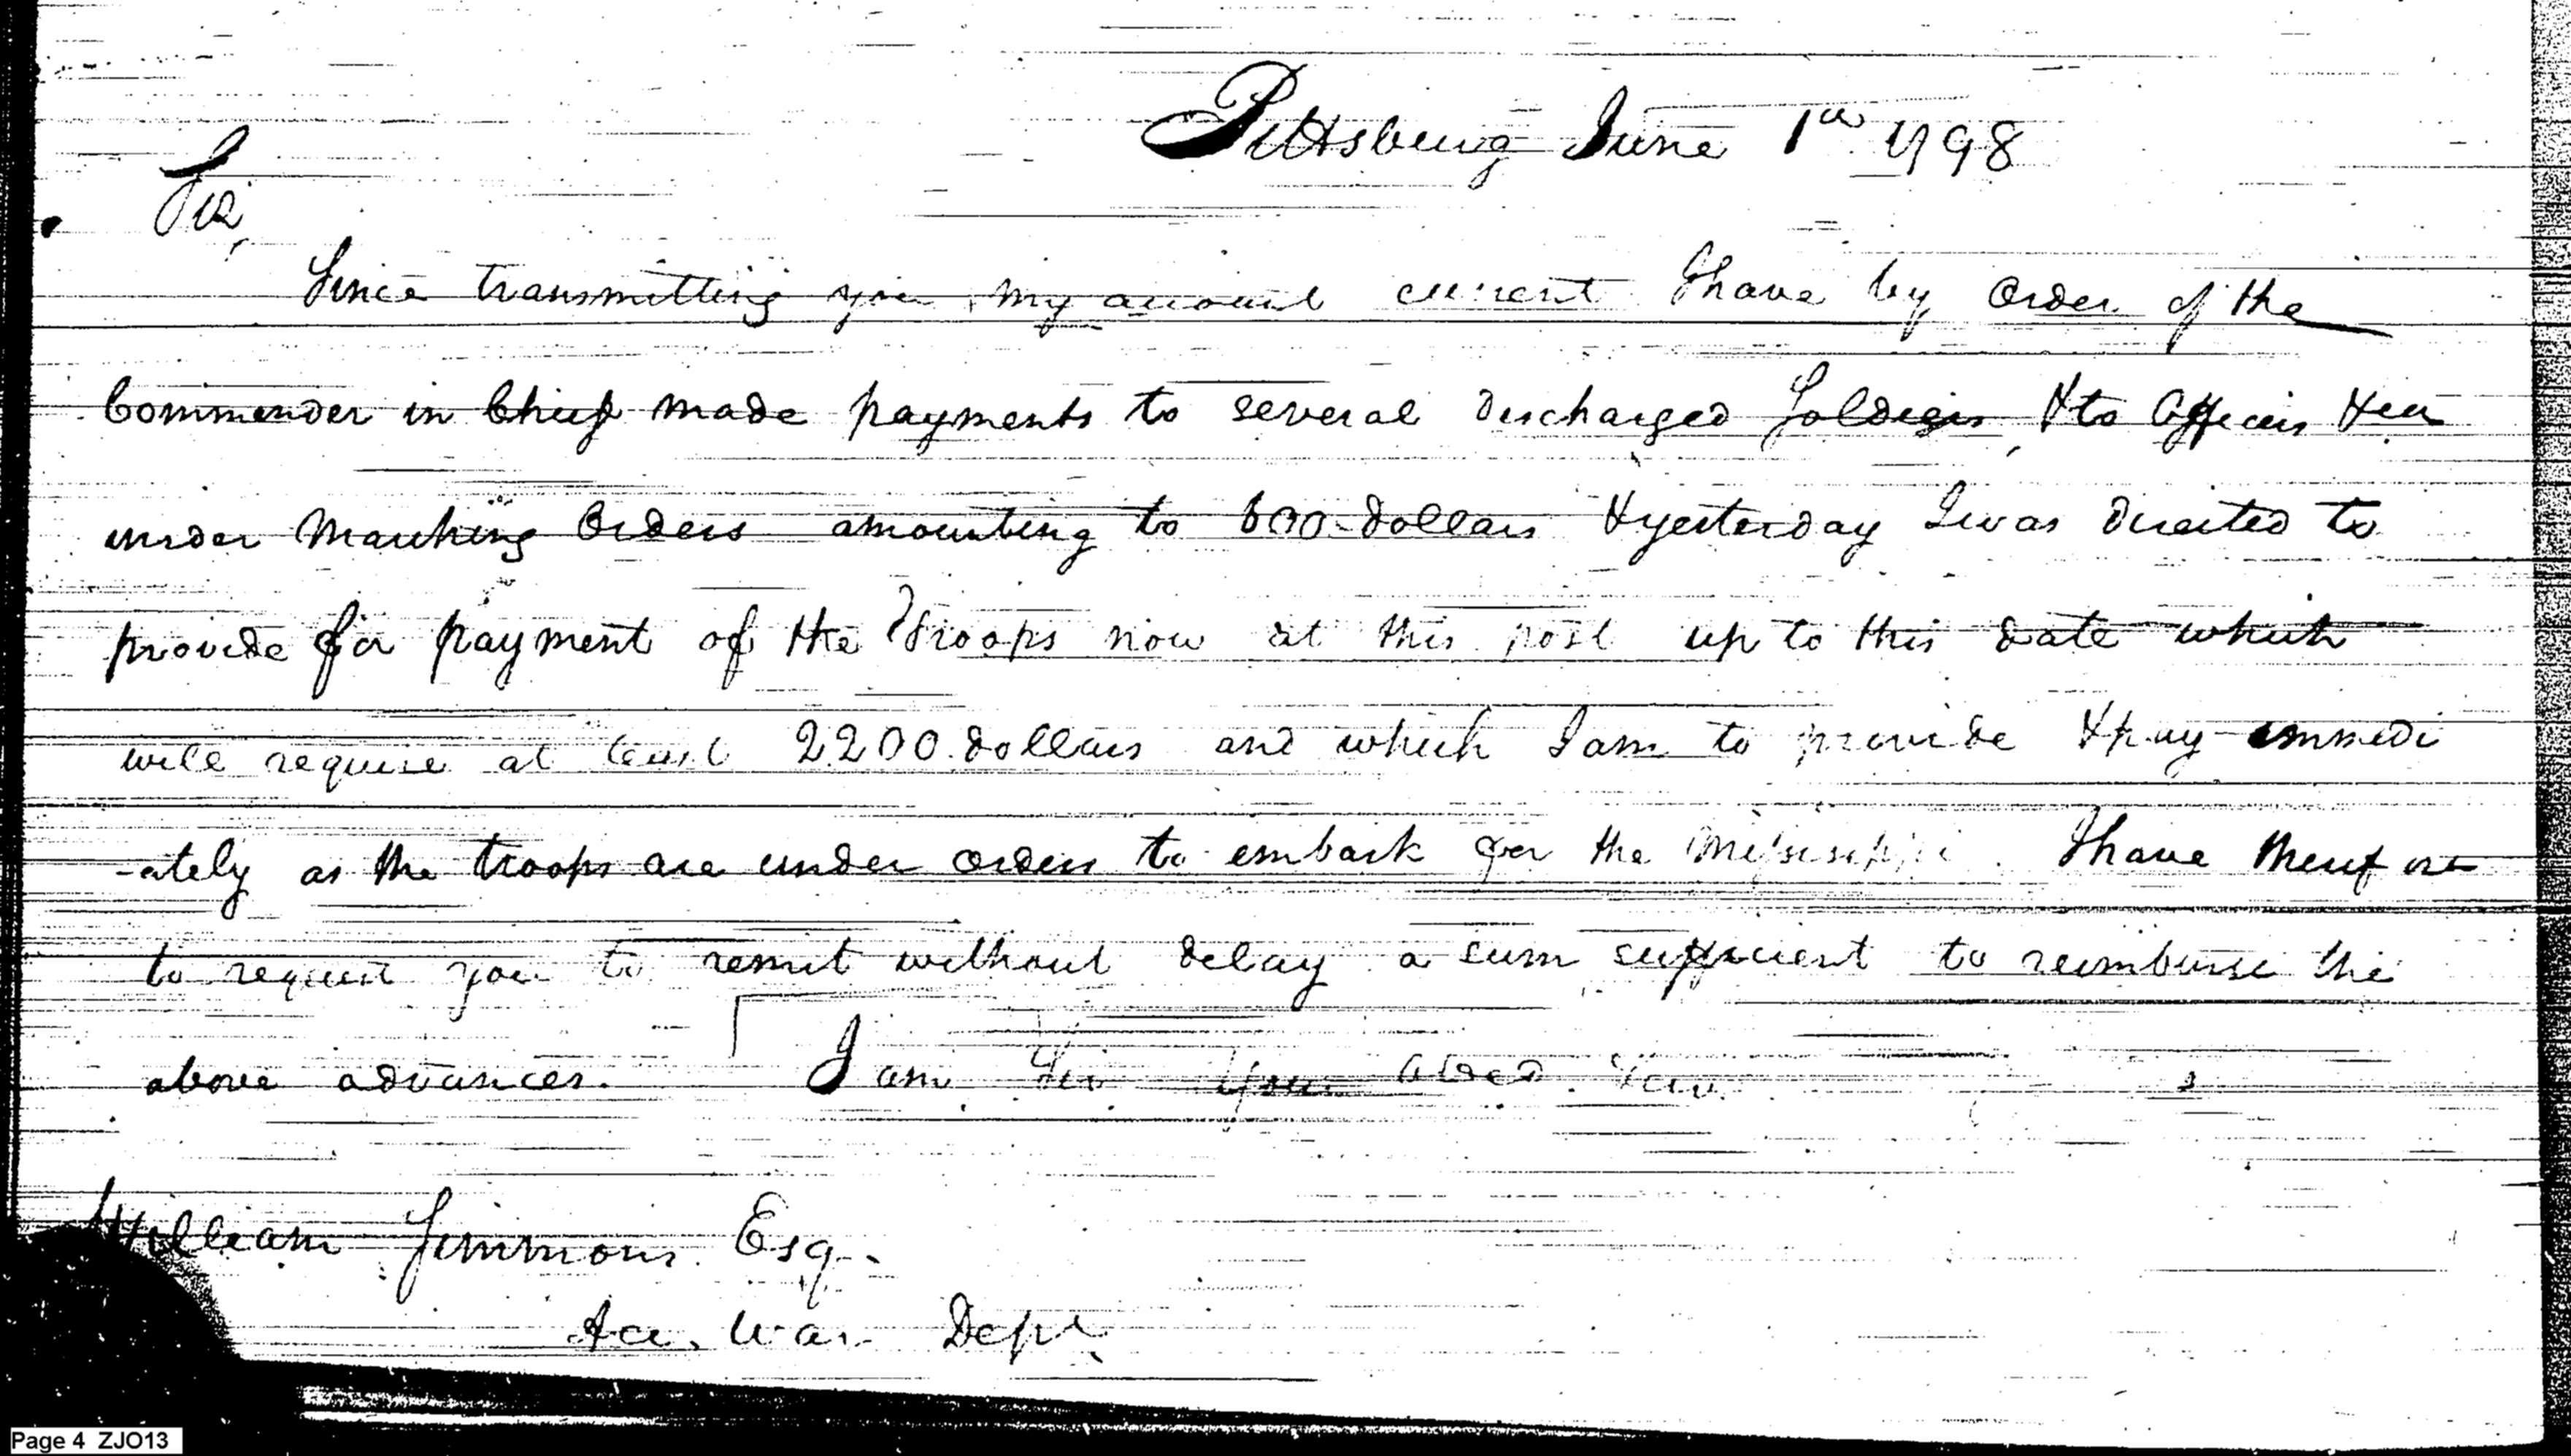 Pittsburg June 1st 1798
Sir,
Since transmitting you my account current I have by order of the
Commander in Chief made payments to several discharged Soldiers, & to Officers
under Marching Orders amounting to 600 dollars & yesterday I was directed to
provide for payment of the Troops now at this post up to this date which
will require at least 2200 dollars and which I am to provide & pay immedi
-ately as the troops are under orders to embark for the Mississippi. I have therefore
to request you to remit without delay a sum sufficient to reimburse the
above advances. I am Sir Your Obed. Serv.
William Simmons Esq.
Acc. War Dept.
Page 4 ZJO13